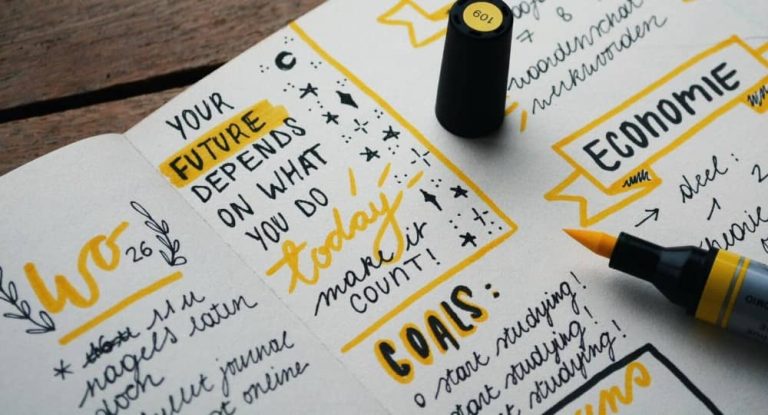 Wo
26
* 11 u
nagels laten
doch
bullet journal
online
YOUR
FUTURE
DEPENDS
ON WHAT
YOU DO
today-
make it
COUNT!
GOALS:
o start studying!
start studying!
start studying!
109
7 8
woordenschat
werkwoorden
ECONOMIE
→ deel:
1 2